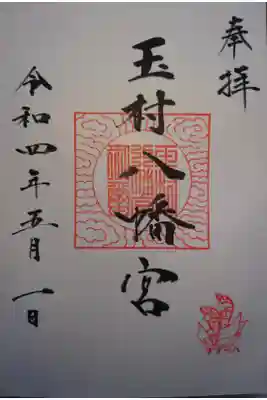 奉拝
玉村八幡宮
令和四年五月一日